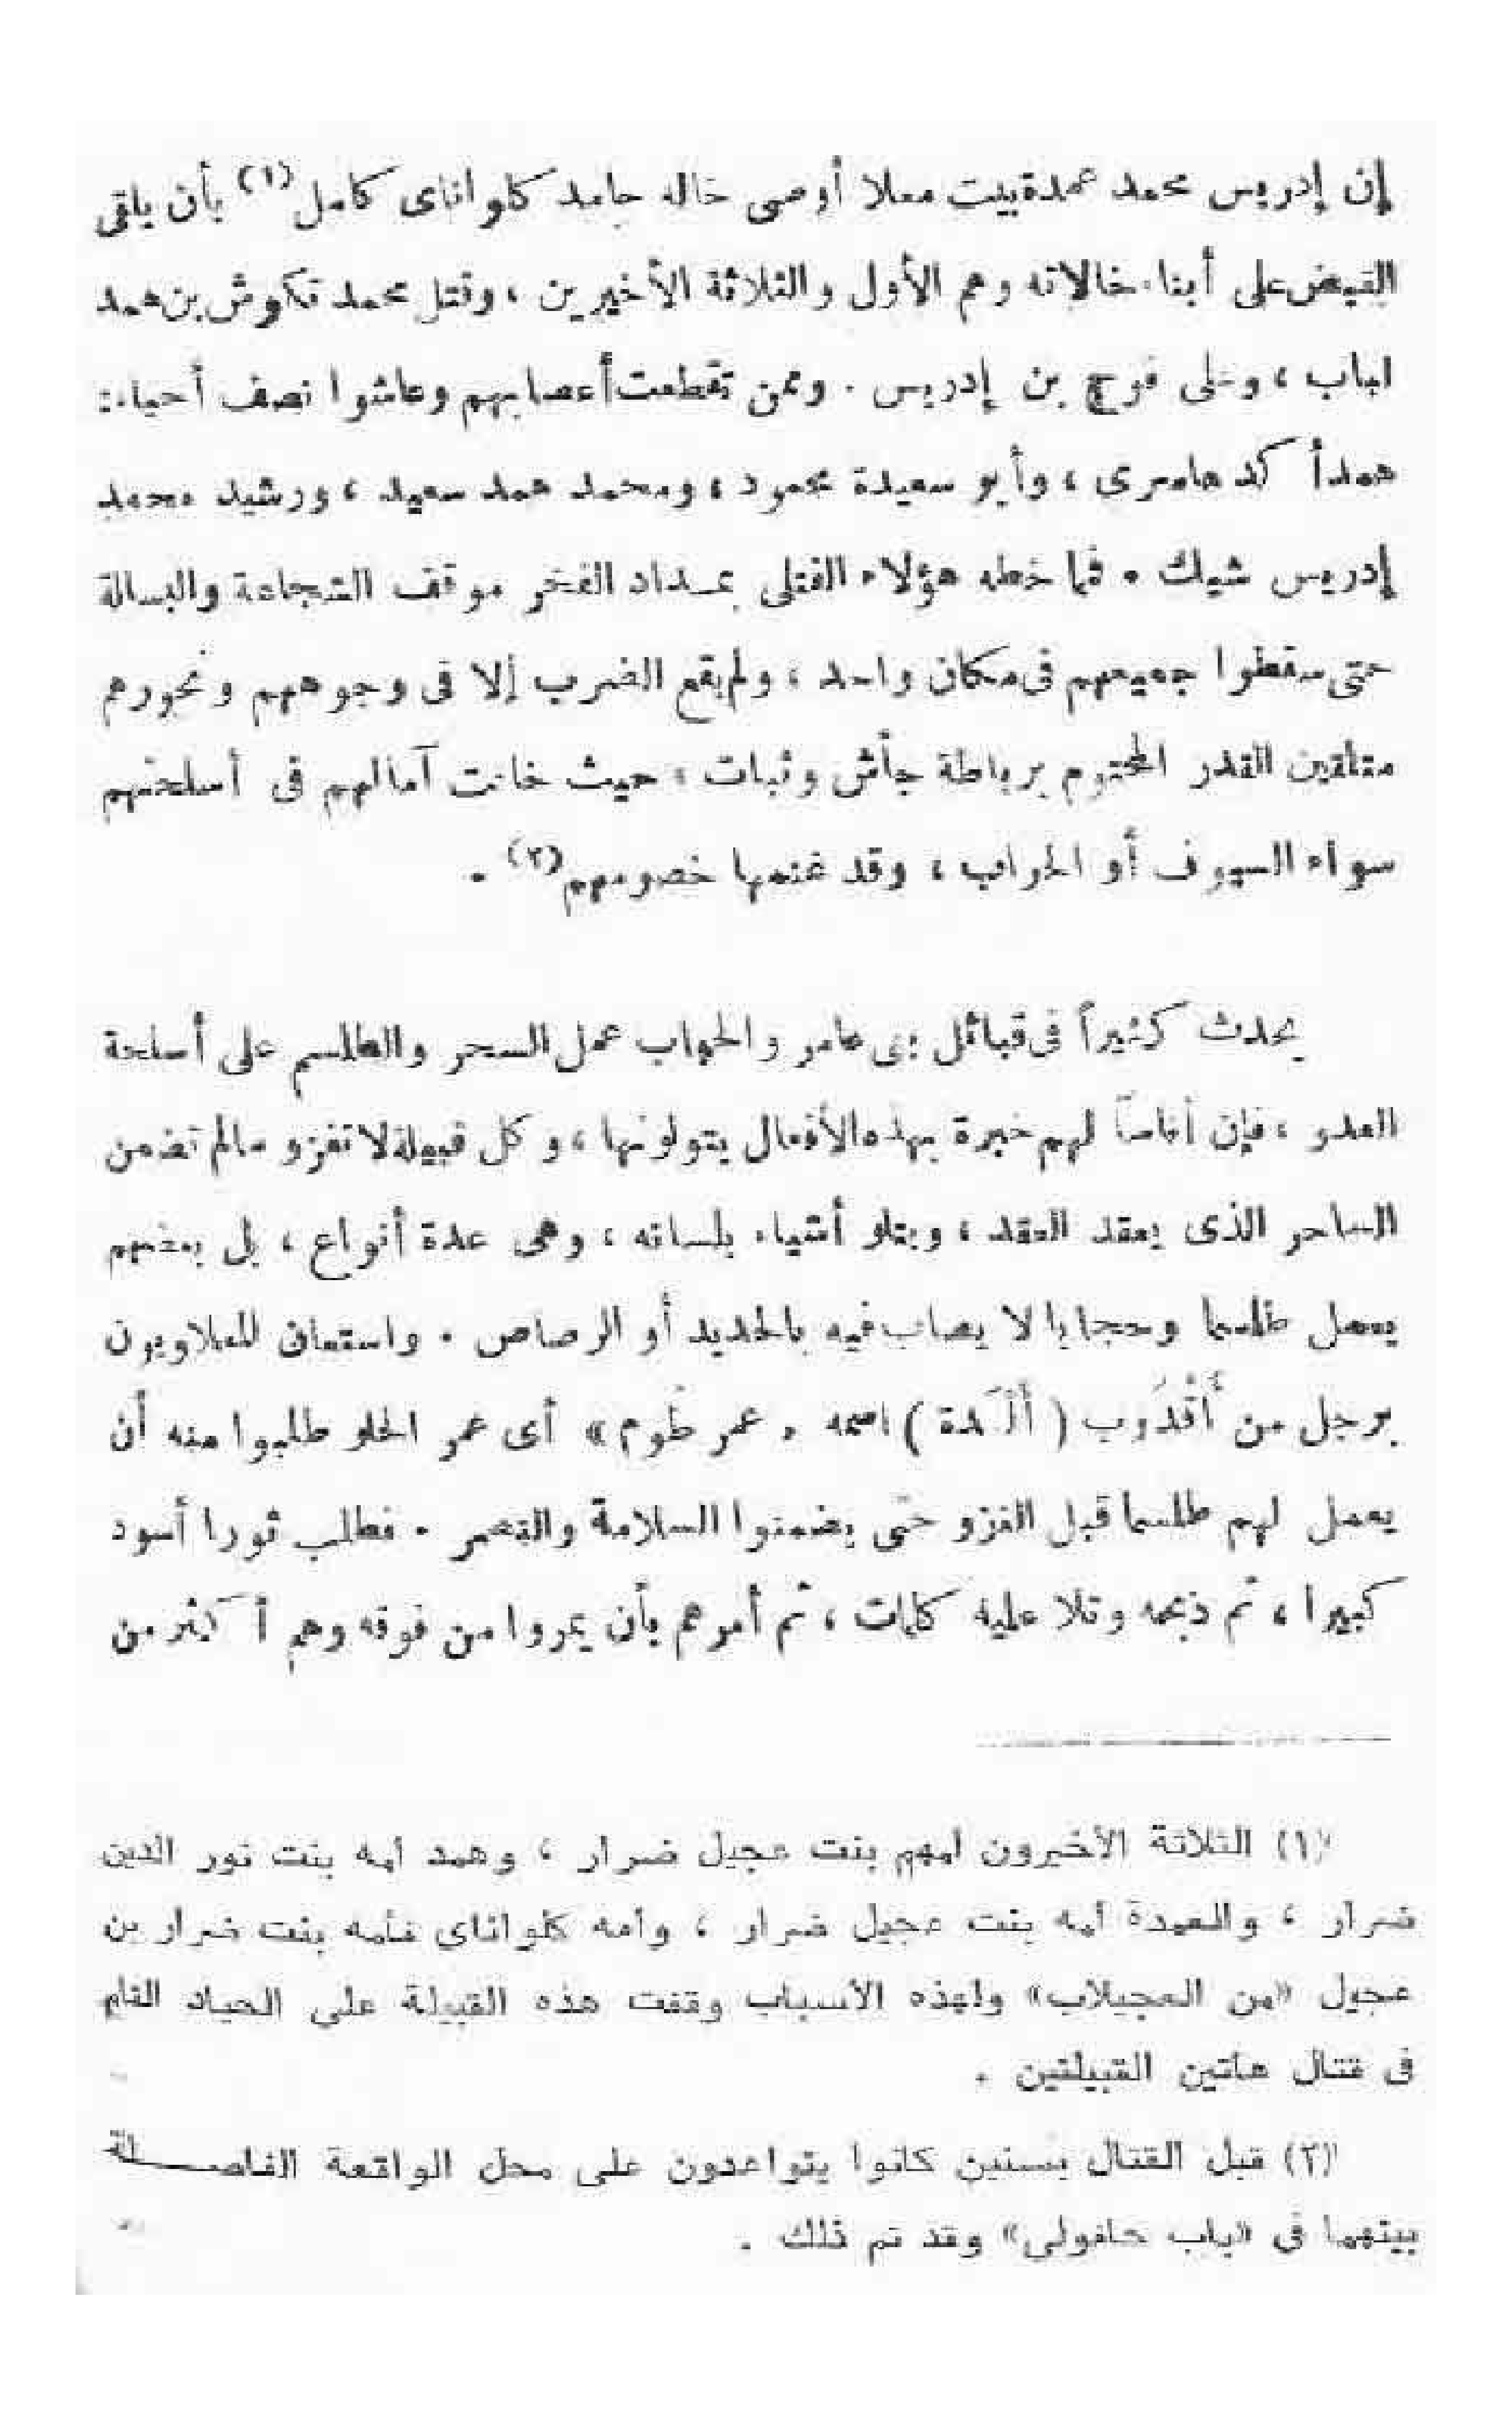 إن إدريس محمد عمدة بيت معلا أوصى خاله حامد كلواناى كامل (١) بأن يلقى
القبض على أبناء خالاته وهم الأول والثلاثة الأخيرين ، وقتل محمد تكوش بن همد
لباب ، وعلى فرج بن إدريس . وممن تقطعت أعصابهم وعاشوا نصف أحياء :
همد أ كد هاسرى ، وأبو سعيدة محمود ، ومحمد همد سعيد ، ورشيد محمد
إدريس شيك . فما خطه هؤلاء القتلى بمداد الفخر موقف الشجاعة والبسالة
حتى سقطوا جميعهم فى مكان واحد ، ولم يقع الضرب إلا فى وجوههم ونحورهم
متلقين القدر المحتوم برباطة جأش وثبات ، حيث خانت آمالهم فى أسلحتهم
سواء السيوف أو الحراب ، وقد غنمها خصومهم (٢) .
يحدث كثيراً فى قبائل بنى عامر والحباب عمل السحر والطلسم على أسلحة
العدو ، فإن أناساً لهم خبرة بهذه الأفعال يتولونها ، وكل قبيلة لا تغزو مالم تضمن
الساحر الذى يعقد العقد ، ويتلو أشياء بلسانه ، وهى عدة أنواع ، بل بعضهم
يعمل طلسما وحجابا لا يصاب فيه بالحديد أو الرصاص . واستعان المعلاويون
برجل من أَقْدُوب ( أَلْمَدة ) اسمه « عمر طُوم » أى عمر الحلو طلبوا منه أن
يعمل لهم طلسما قبل الغزو حتى يضمنوا السلامة والنصر . فطلب ثورا أسود
كبيرا ، ثم ذبحه وتلا عليه كلمات ، ثم أمرهم بأن يمروا من فوقه وهم أ كثر من
(١) الثلاثة الأخيرون أمهم بنت عجيل ضرار ، وهمد أمه بنت نور الدين
ضرار ، والعمدة أمه بنت عجيل ضرار ، وأمه كلواناى فأمه بنت ضرار بن
عجيل «من العجيلاب» ولهذه الأسباب وقفت هذه القبيلة على الحياد التام
فى قتال هاتين القبيلتين .
(٢) قبل القتال بسنين كانوا يتواعدون على محل الواقعة الفاصـــلة
بينهما فى «باب حافولى» وقد تم ذلك .